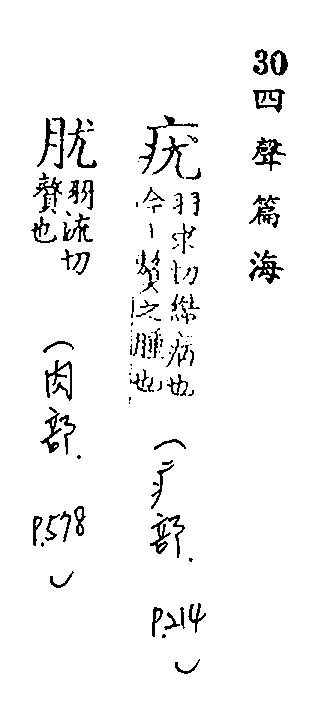 30四聲篇海
疣羽求切結病也
今丨贅之腫也
(疒部.
P.214)
肬羽流切
贅也
(肉部.
P.578)